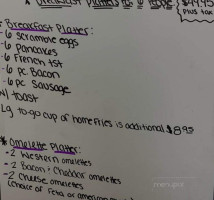 Breakfast Platters $49.95
plus tax
* Breakfast Platter:
-6 scramble eggs
-6 pancakes
-6 French tst
-6 pc Bacon
-6 pc Sausage
w/ toast
Lg to-go cup of homefries is additional $8.95
* Omelette Platter:
-2 Western omelettes
-2 Bacon + Cheddar omelettes
-2 Cheese omelettes
(choice of Feta or american